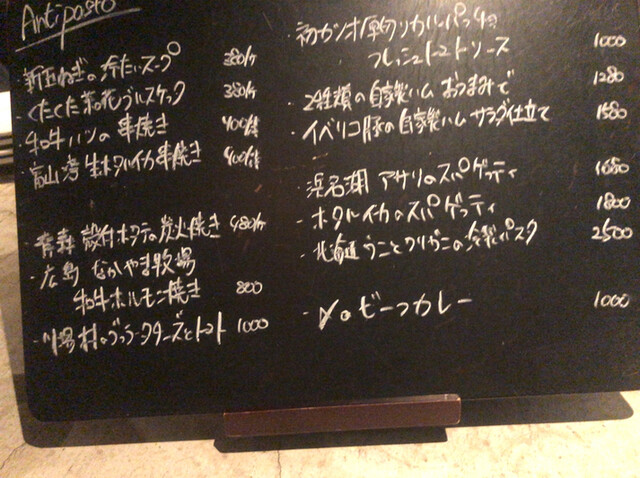 Antipasto
新玉ねぎの冷たいスープ 380/ケ
・くたくた菜の花ブルスケッタ 380/ケ
・和牛ハツの串焼き 400/本
・富山湾生ホタルイカ串焼き 400/本
・青森 殻付ホタテの炭火焼き 480/ケ
・広島 なかやま牧場
和牛ホルモン焼き 800
・川場村のブッラータチーズとトマト 1000
・初カツオ厚切りカルパッチョ
フレッシュトマトソース 1000
・2種類の自家製ハム おつまみで 1280
・イベリコ豚の自家製ハム サラダ仕立て 1580
・浜名湖 アサリのスパゲッティ 1680
・ホタルイカのスパゲッティ 1800
・北海道 うにとクリガニの冷製パスタ 2500
・〆のビーフカレー 1000